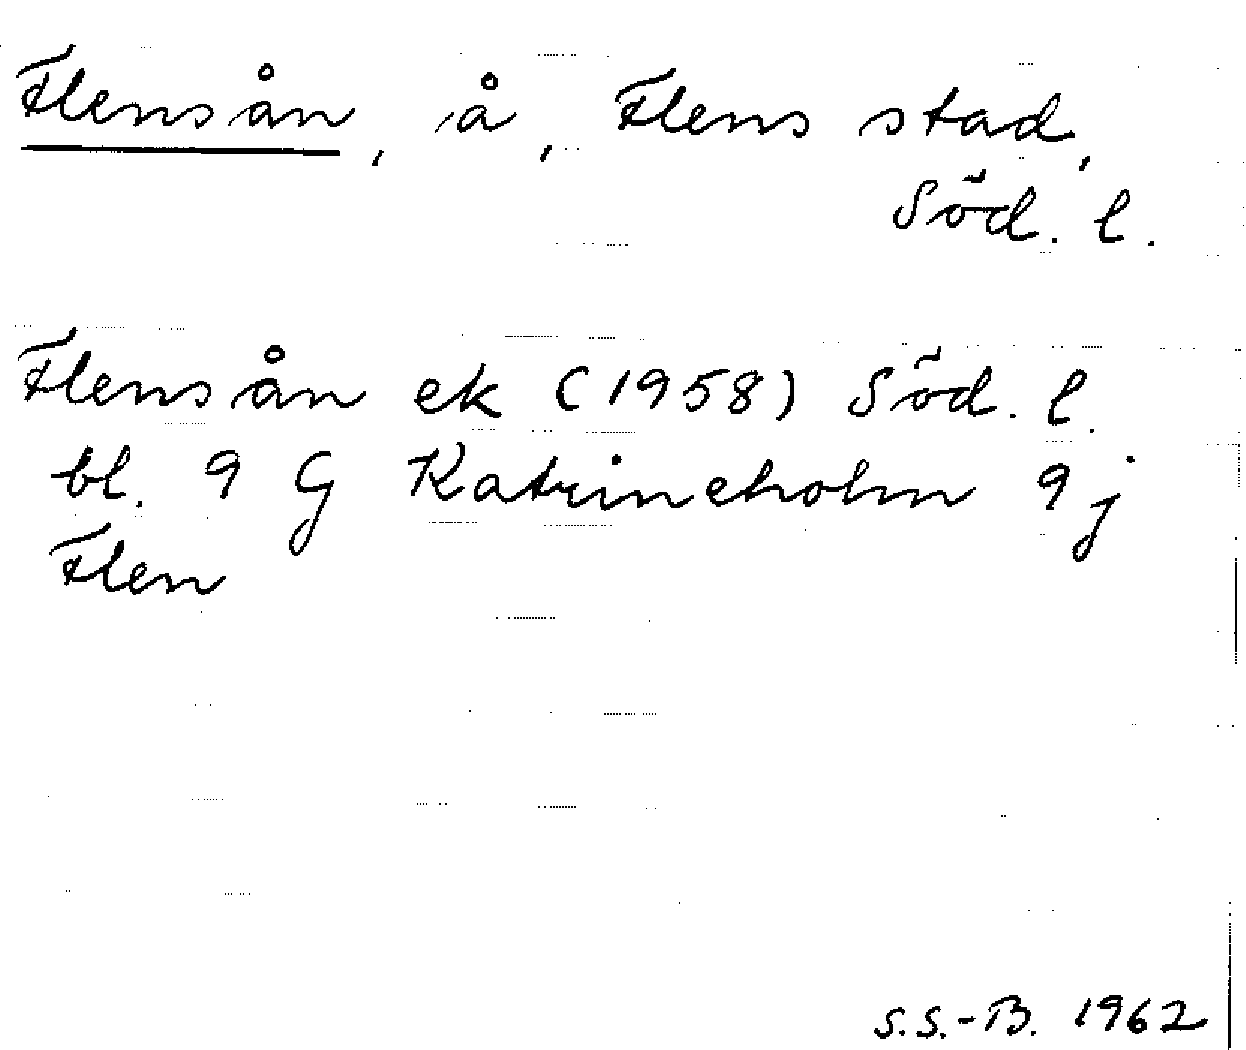 Flensån, å, Flens stad,
Söd. l.
Flensån ek (1958) Söd. l.
bl. 9 G Katrineholm 9 j
Flen
S.S.-B. 1962